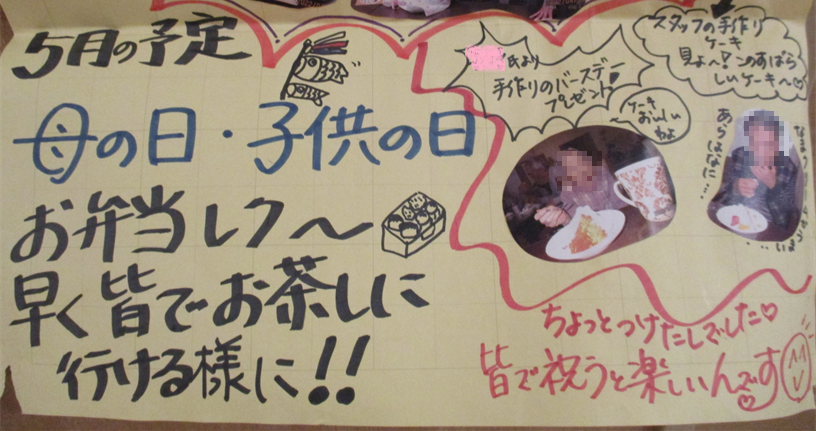 5月の予定
母の日・子供の日
お弁当レク〜
早く皆でお茶しに
行ける様に!!
氏より
手作りのバースデー
プレゼント
スタッフの手作り
ケーキ
見よ〜!このすばら
しいケーキ〜♡
ケーキ
おいしい
わよ
あらはなに…
ちょっとつけたしでした♡
皆で祝うと楽しいんです♡